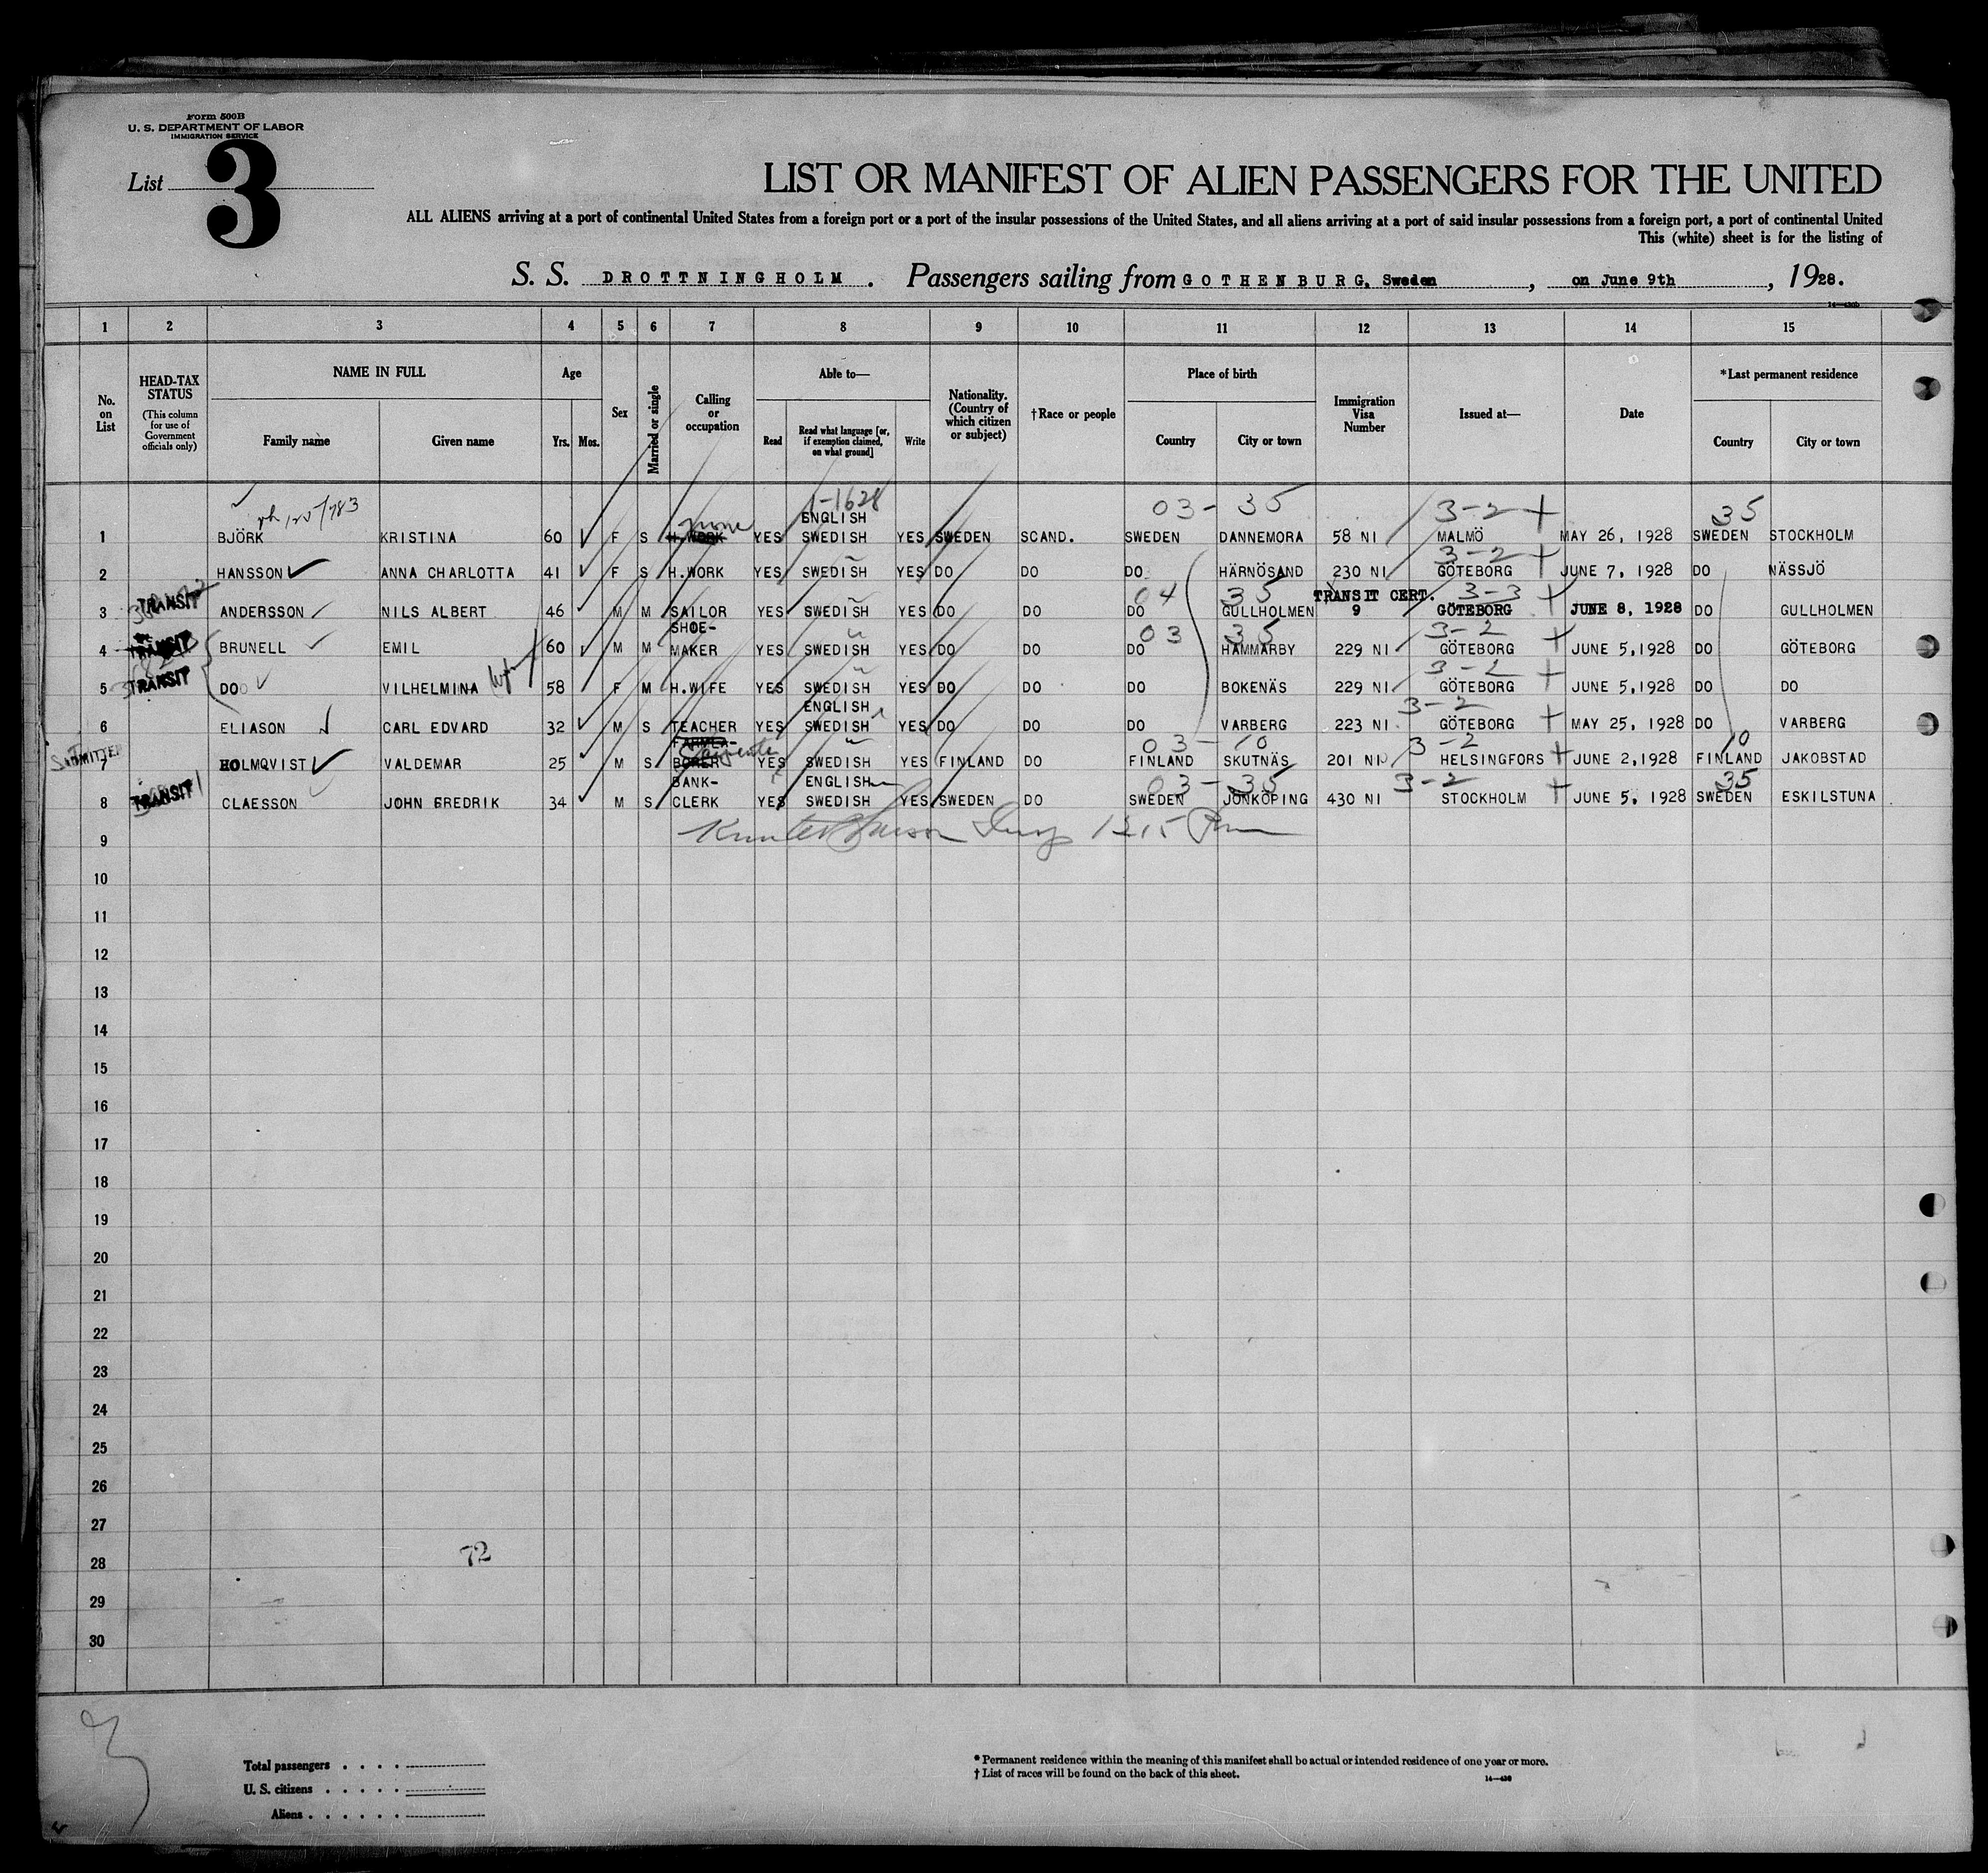 Form 500B
U. S. DEPARTMENT OF LABOR
IMMIGRATION SERVICE
List 3
LIST OR MANIFEST OF ALIEN PASSENGERS FOR THE UNITED
ALL ALIENS arriving at a port of continental United States from a foreign port or a port of the insular possessions of the United States, and all aliens arriving at a port of said insular possessions from a foreign port, a port of continental United
This (white) sheet is for the listing of
S. S. DROTTNINGHOLM. Passengers sailing from GOTHENBURG, Sweden, on June 9th, 1928.
1 2 3 4 5 6 7 8 9 10 11 12 13 14 15
No. on List
HEAD-TAX STATUS (This column for use of Government officials only)
NAME IN FULL
Family name Given name
Age
Yrs. Mos.
Sex
Married or single
Calling or occupation
Able to—
Read Read what language [or, if exemption claimed, on what ground] Write
Nationality. (Country of which citizen or subject)
†Race or people
Place of birth
Country City or town
Immigration Visa Number
Issued at—
Date
*Last permanent residence
Country City or town
1-1628 03-35 3-2 35
none ENGLISH
1 BJÖRK KRISTINA 60 F S H.WORK YES SWEDISH YES SWEDEN SCAND. SWEDEN DANNEMORA 58 NI MALMÖ MAY 26, 1928 SWEDEN STOCKHOLM
3-2
2 HANSSON ANNA CHARLOTTA 41 F S H.WORK YES SWEDISH YES DO DO DO HÄRNÖSAND 230 NI GÖTEBORG JUNE 7, 1928 DO NÄSSJÖ
TRANSIT 04 35 TRANSIT CERT. 3-3
3 ANDERSSON NILS ALBERT 46 M M SAILOR YES SWEDISH YES DO DO DO GULLHOLMEN 9 GÖTEBORG JUNE 8, 1928 DO GULLHOLMEN
TRANSIT SHOE- 03 35 3-2
4 BRUNELL EMIL 60 M M MAKER YES SWEDISH YES DO DO DO HAMMARBY 229 NI GÖTEBORG JUNE 5,1928 DO GÖTEBORG
TRANSIT 3-2
5 DO VILHELMINA 58 F M H.WIFE YES SWEDISH YES DO DO DO BOKENÄS 229 NI GÖTEBORG JUNE 5,1928 DO DO
ENGLISH 3-2
6 ELIASON CARL EDVARD 32 M S TEACHER YES SWEDISH YES DO DO DO VARBERG 223 NI GÖTEBORG MAY 25, 1928 DO VARBERG
FARMLA- 03-10 3-2 10
7 HOLMQVIST VALDEMAR 25 M S BORER YES SWEDISH YES FINLAND DO FINLAND SKUTNÄS 201 NI HELSINGFORS JUNE 2,1928 FINLAND JAKOBSTAD
TRANSIT BANK- ENGLISH 03-35 3-2 35
8 CLAESSON JOHN FREDRIK 34 M S CLERK YES SWEDISH YES SWEDEN DO SWEDEN JÖNKÖPING 430 NI STOCKHOLM JUNE 5, 1928 SWEDEN ESKILSTUNA
9
10
11
12
13
14
15
16
17
18
19
20
21
22
23
24
25
26
27
28 72
29
30
Total passengers
U. S. citizens
Aliens
* Permanent residence within the meaning of this manifest shall be actual or intended residence of one year or more.
† List of races will be found on the back of this sheet.